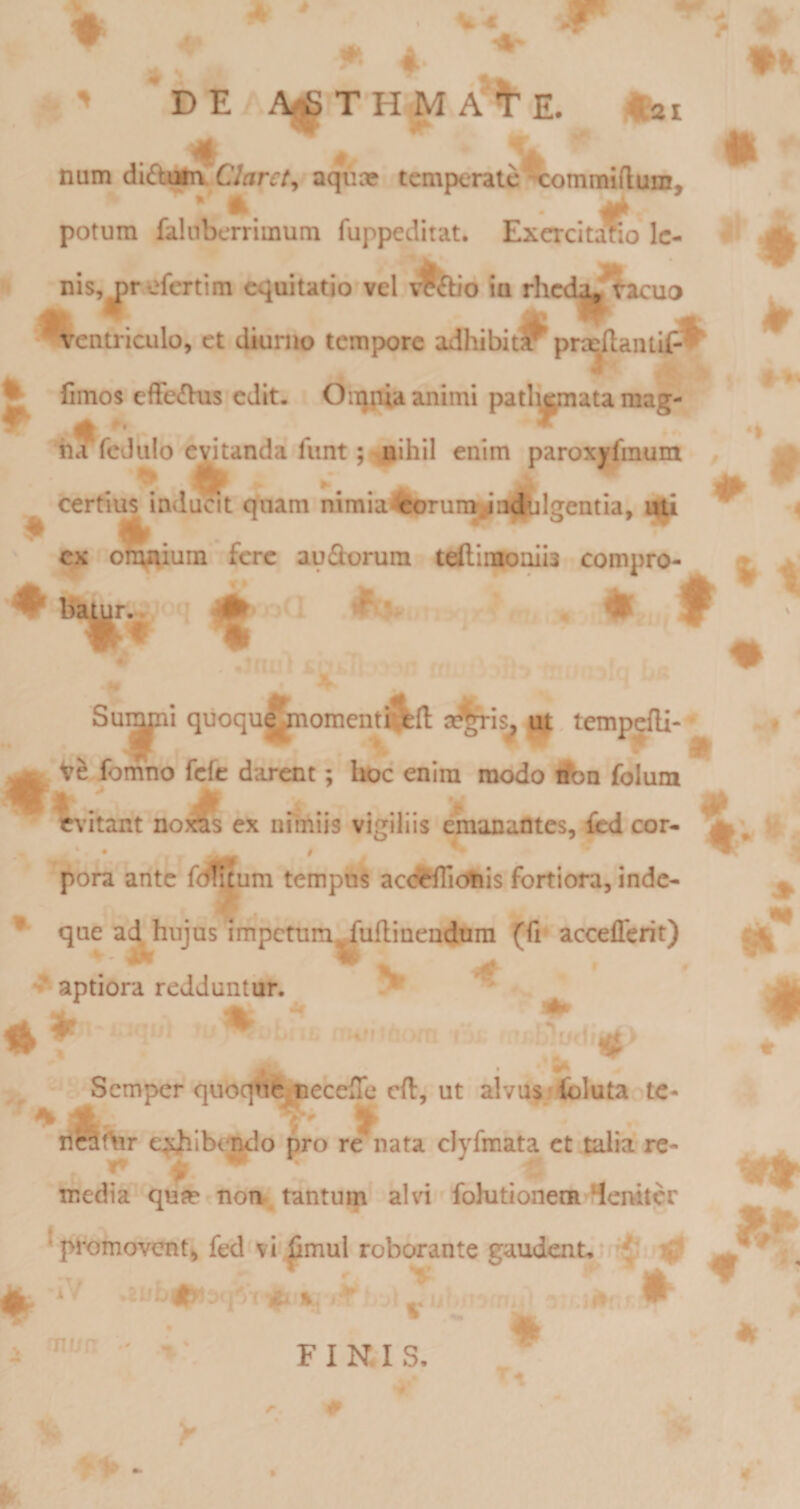 DE ASTHMATE. 21
num dictum Claret, aquæ temperatè commiſtum,
potum ſaluberrimum ſuppeditat. Exercitatio le-
nis, præſertim equitatio vel vectio in rheda, vacuo
ventriculo, et diurno tempore adhibita præſtantiſ-
ſimos effectus edit. Omnia animi pathemata mag-
na ſedulo evitanda ſunt; nihil enim paroxyſmum
certius inducit quam nimia eorum indulgentia, uti
ex omnium fere auctorum teſtimoniis compro-
batur.
Summi quoque momenti eſt ægris, ut tempeſti-
vè ſomno ſeſe darent; hoc enim modo non ſolum
evitant noxas ex nimiis vigiliis emanantes, ſed cor-
pora ante ſolitum tempus acceſſionis fortiora, inde-
que ad hujus impetum ſuſtinendum (ſi acceſſerit)
aptiora redduntur.
Semper quoque neceſſe eſt, ut alvus ſoluta te-
neatur exhibendo pro re nata clyſmata et talia re-
media quæ non tantum alvi ſolutionem lenitèr
promovent, ſed vi ſimul roborante gaudent.
FINIS.